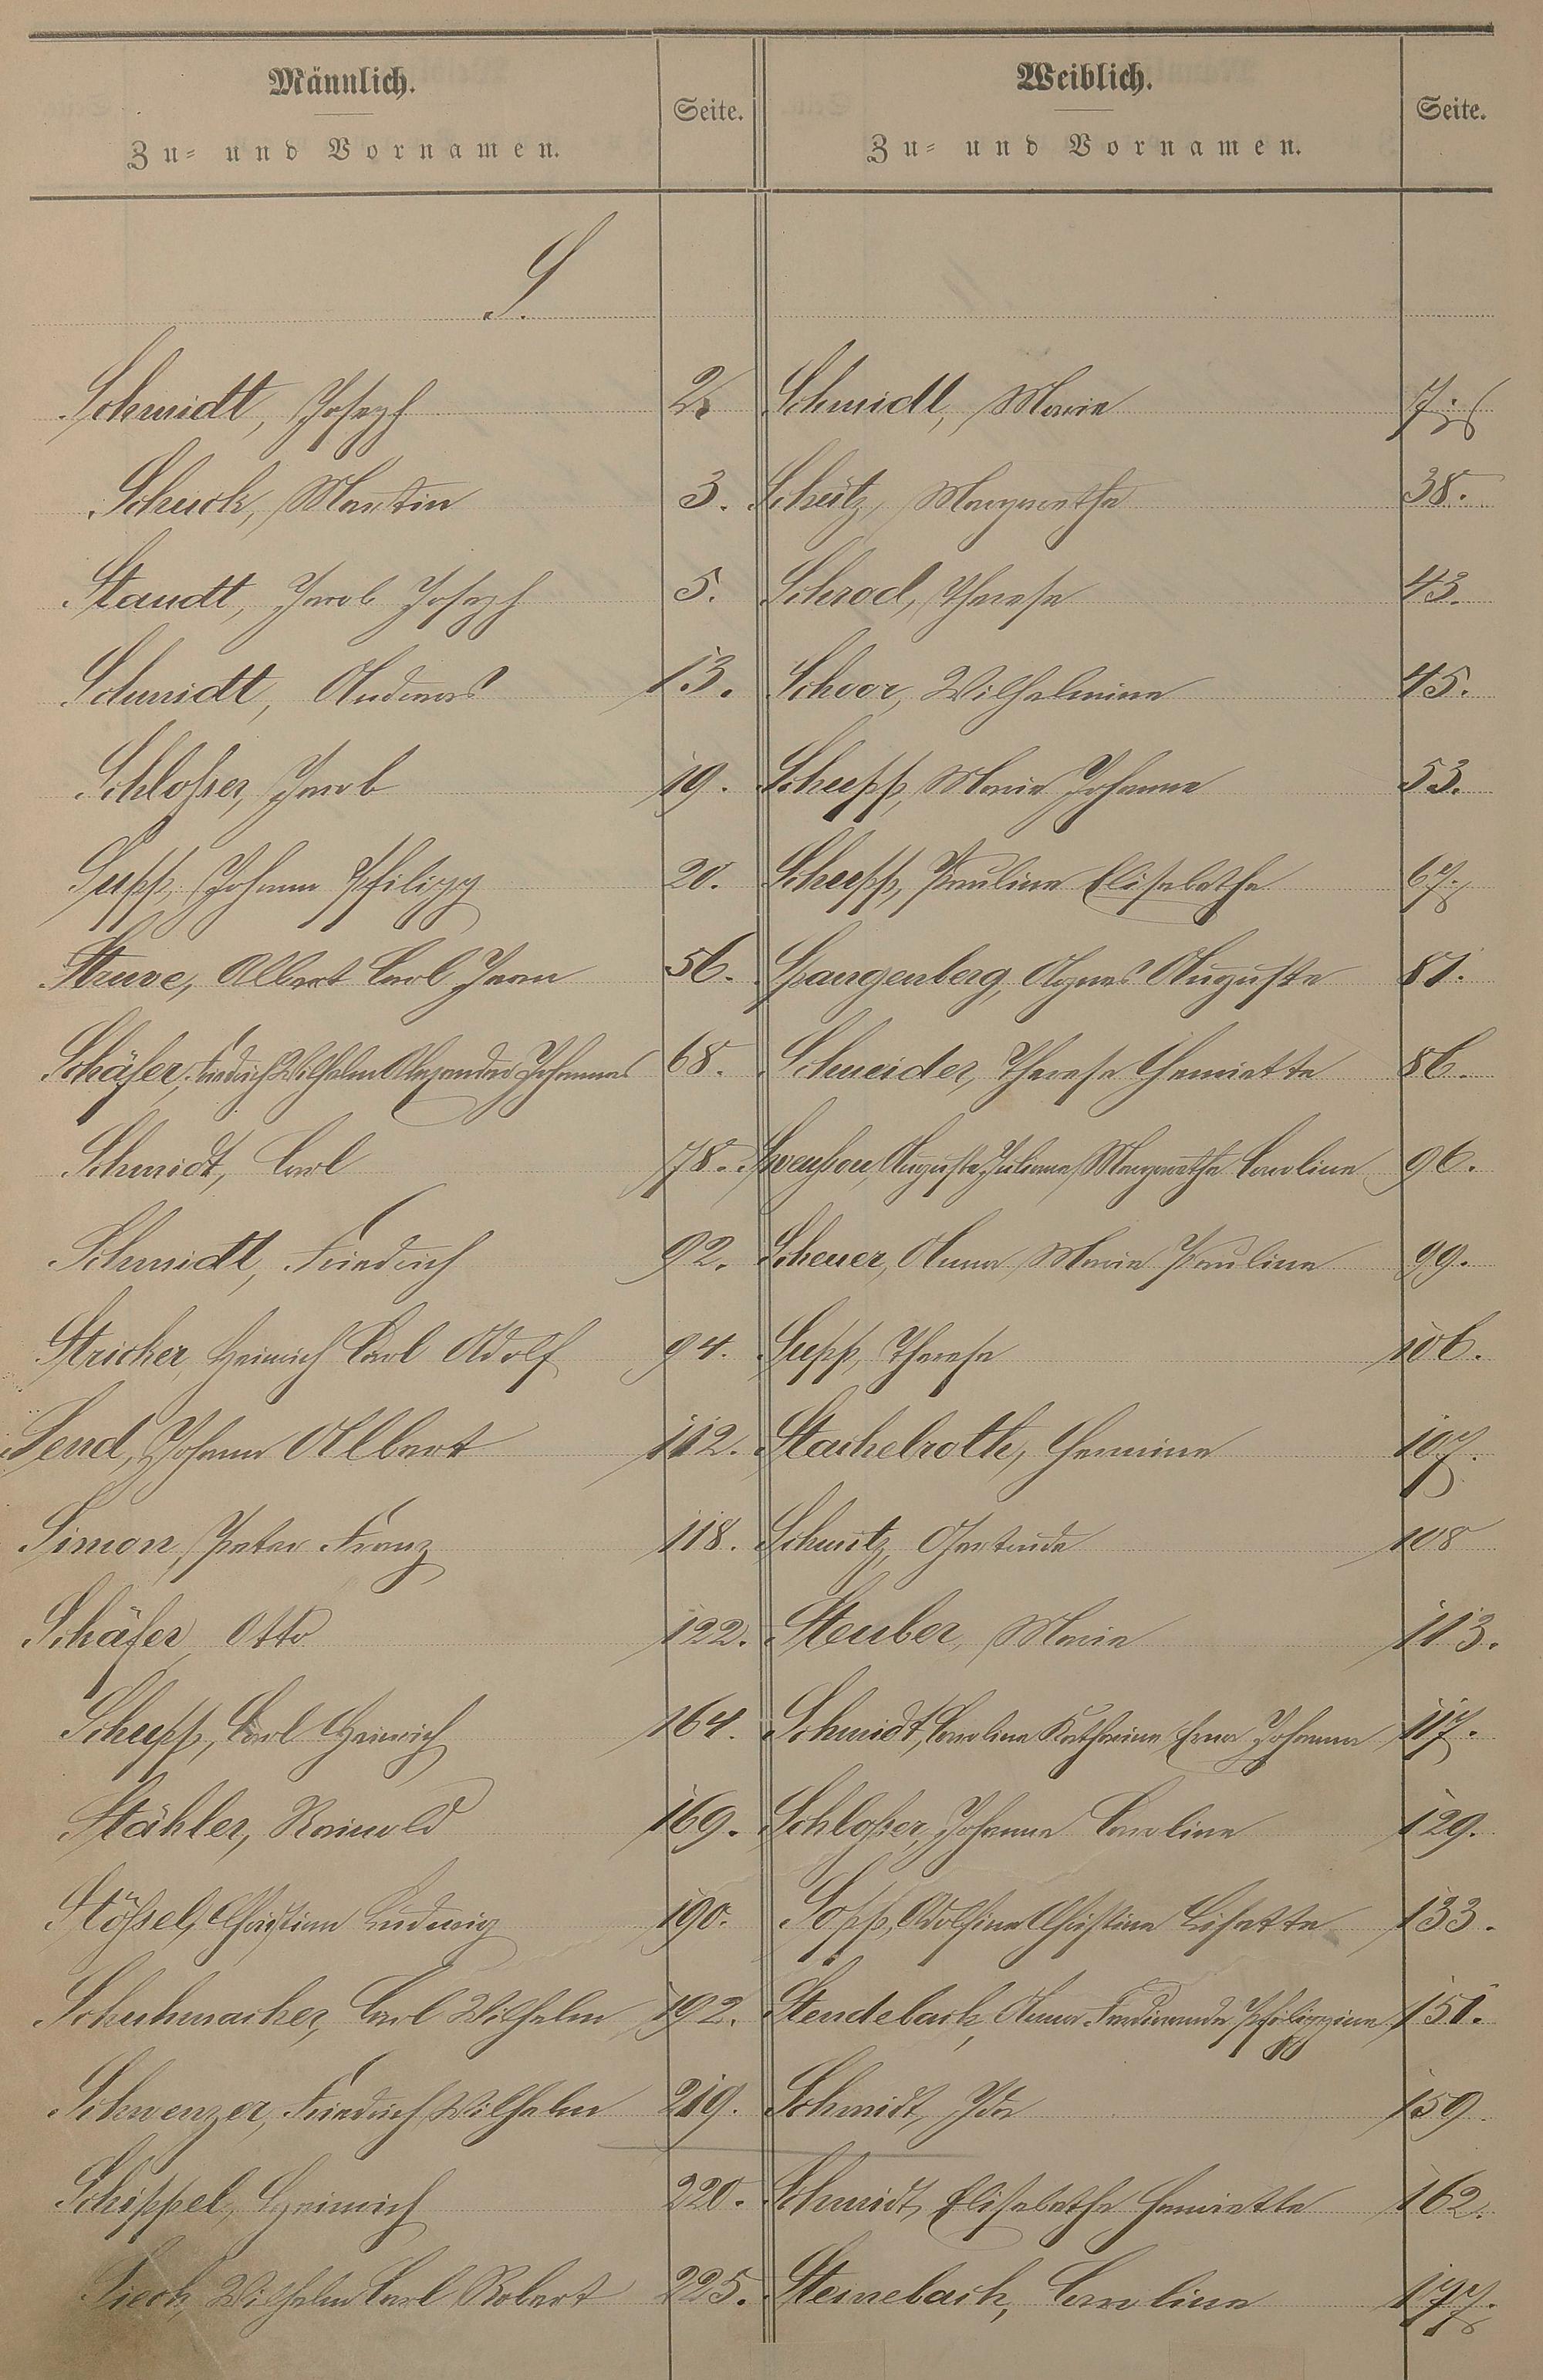 Männlich.
Zu- und Vornamen.
Seite.
Weiblich.
Zu- und Vornamen.
Seite.
S.
Schmidt, Joseph 2. Schmidt, Marie 7.
Schuck, Martin 3. Schütz, Margarethe 38.
Staudt, Jacob Joseph 5. Schrod, Therese 43.
Schmidt, Andreas 13. Schoor, Wilhelmine 45.
Schloßer, Jacob 19. Schupp, Marie Johanna 53.
Supp, Johann Philipp 20. Schupp, Pauline Elisabetha 67.
Struve, Albert Carl Jean 56. Spangenberg, Agnes Auguste 81.
Schäfer, Friedrich Wilhelm Alexander Johannes 68. Schneider, Therese Henriette 86.
Schmidt, Carl 78. Swenßon, Auguste Juliane Margarethe Caroline 96.
Schmidt, Friedrich 92. Scheuer, Anna Marie Pauline 99.
Stricker, Heinrich Carl Adolf 94. Supp, Therese 106.
Send, Johann Albert 112. Stachelroth, Hermine 107.
Simon, Peter Franz 118. Schmitz, Gertrude 108
Schäfer, Otto 122. Steuber, Marie 113.
Schupp, Carl Heinrich 164. Schmidt, Caroline Katharina Erna Johanna 117.
Stähler, Reinold 169. Schloßer, Johanna Caroline 129.
Stößel, Christian Ludwig 190. Sopp, Adolfine Christine Lisette 133.
Schuhmacher, Carl Wilhelm 192. Stendebach, Anna Ferdinande Philippine 151.
Schwenzer, Friedrich Wilhelm 219. Schmidt, Ida 159.
Schippel, Heinrich 220. Schmidt, Elisabetha Henriette 162.
Sieck, Wilhelm Carl Robert 225. Steinebach, Caroline 177.